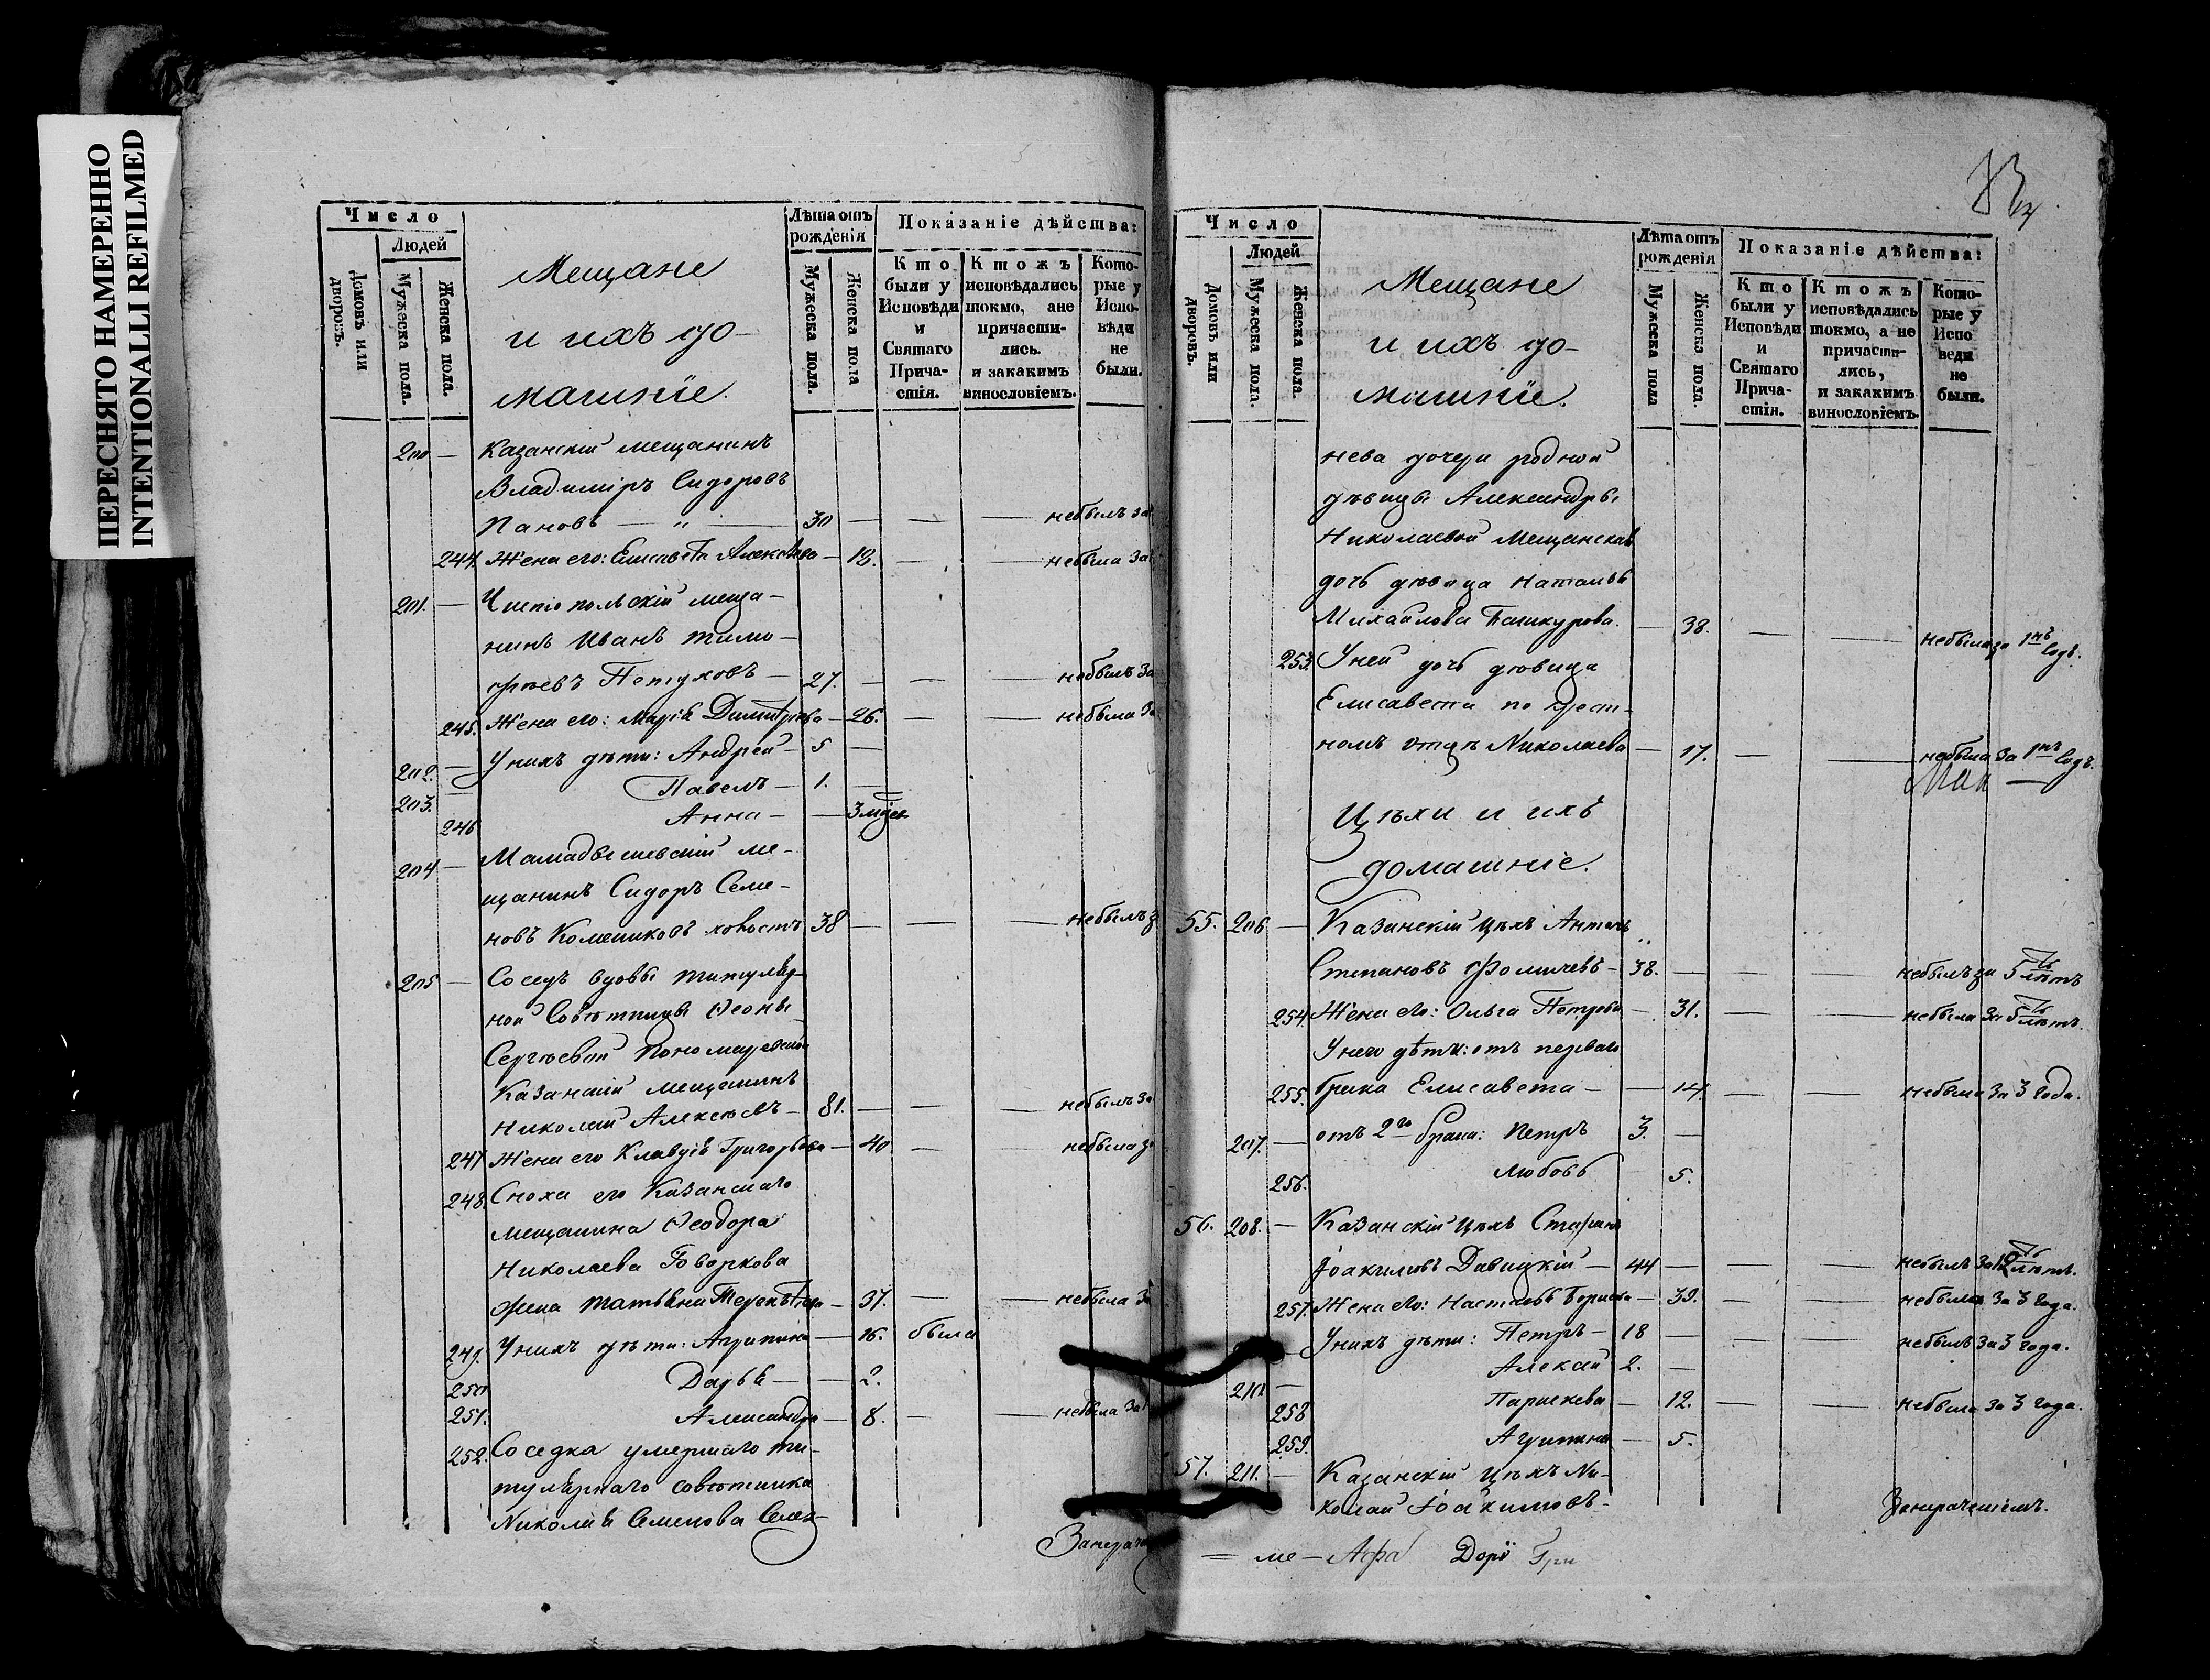 ПЕРЕСНЯТО НАМЕРЕННО
INTENTIONALLI REFILMED
Число
Людей
Домовъ или дворовъ.
Мужеска пола.
Женска пола.
Мещане
и ихъ до-
машніе.
Лѣта отъ рожденія
Мужеска пола.
Женска пола
Показаніе дѣйства:
Кто были у Исповѣди и Святаго Причастія.
Ктожъ исповѣдались токмо, а не причасти-лись. и закакимъ винословіемъ.
Кото-рые у Испо-вѣди не были.
200 — Казанскій мещанинъ
Владиміръ Сидоровъ
Пановъ — „ — 30 — — — небылъ за
244. Жена его: Елисавета Алексѣева — 18. — — небыла за
201. — Чистопольскій меща-
нинъ Иванъ Тимо-
фѣевъ Петуховъ — 27. — — — небылъ за
245. Жена его: Марія Димитріева — 26. — — небыла за
202. — У нихъ дѣти: Андрей — 5 —
203. — Павелъ — 1. —
246 Анна — — 3 мѣсец
204 — Мамадышевскій ме-
щанинъ Сидоръ Семе-
новъ холостъ 38 — — — небылъ з
205 — Соседъ вдовы титуляр-
ной Совѣтницы Ѳеоны
Сергѣевой Пономаревской
Казанскій мещанинъ
Николай Алексѣевъ — 81. — — — небылъ за
247 Жена его Клавдія Григорьева — 40 — — небыла за
248. Сноха его Казанскаго
мещанина Ѳеодора
Николаева Говоркова
жена Татьяна Терентьева — 37. — — небыла за
249. У нихъ дѣти: Агрипина — 16. была
250 Дарья — — 2.
251. Александра — 8. — — небыла за
252. Соседка умершаго ти-
тулярнаго совѣтника
Николая Семенова Селез-
Число
Людей
Домовъ или дворовъ.
Мужеска пола.
Женска пола.
Мещане
и ихъ до-
машніе.
Лѣта отъ рожденія
Мужеска пола
Женска пола.
Показаніе дѣйства:
Кто были у Исповѣди и Святаго Прича-стія.
Ктожъ исповѣдались токмо, а не причасти-лись, и закакимъ винословіемъ.
Кото-рые у Испо веди не были.
нева дочери родной
дѣвицы Александры
Николаевой Мещанская
дочь дѣвица Наталья
Михайлова Башкурова. — 38. — — небыла за 1нъ годъ.
253. У ней дочь дѣвица
Елисавета по крест-
номъ отцѣ Николаева — 17. — — небыла за 1нъ годъ.
Цѣхи и ихъ
домашніе.
55. 206 — Казанскій цѣхъ Антонъ
Степановъ Фомичевъ — 38. — — — небылъ за 5ть лѣтъ
254. Жена его: Ольга Петрова — 31. — — небыла за 5ть лѣтъ.
У него дѣти: отъ перваго
255. брака Елисавета — — 14. — — небыла за 3 года.
207. — отъ 2го брака: Петръ 3. —
256. Любовь 5.
56. 208. — Казанскій цѣхъ Стефанъ
Іоакимовъ Давицкій — 44 — — — небылъ за лѣтъ.
257. Жена его: Настасья Борисова — 39. — — небыла за 3 года.
— У нихъ дѣти: Петръ — 18 — — — небылъ за 3 года.
210 — Алексѣй 2. —
258 Параскева — 12. — — небыла за 3 года.
259. Агрипина — 5.
57. 211. — Казанскій цѣхъ Ни-
колай Іоакимовъ-
= ме — Афа Дорі Гри